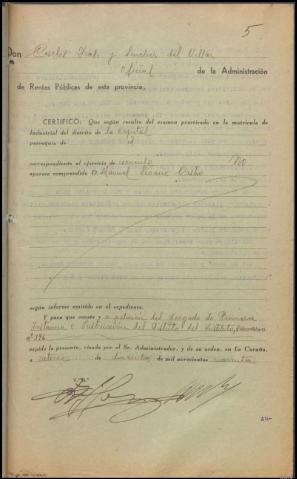 5
Don Carlos Deus y Sánchez del Villar
Oficial de la Administración
de Rentas Públicas de esta provincia,
CERTIFICO: Que según resulta del examen practicado en la matrícula de
Industrial del distrito de la Capital
parroquia de
correspondiente al ejercicio de corriente NO
aparece comprendido D. Manuel Seoane Castro
según informe emitido en el expediente.
Y para que conste y a petición del Juzgado de Primera
Instancia e Instrucción del distrito del Instituto,
nº 196
expido la presente, visada por el Sr. Administrador, y de su orden, en La Coruña,
a catorce de de mil novecientos cuarenta
V.º B.º